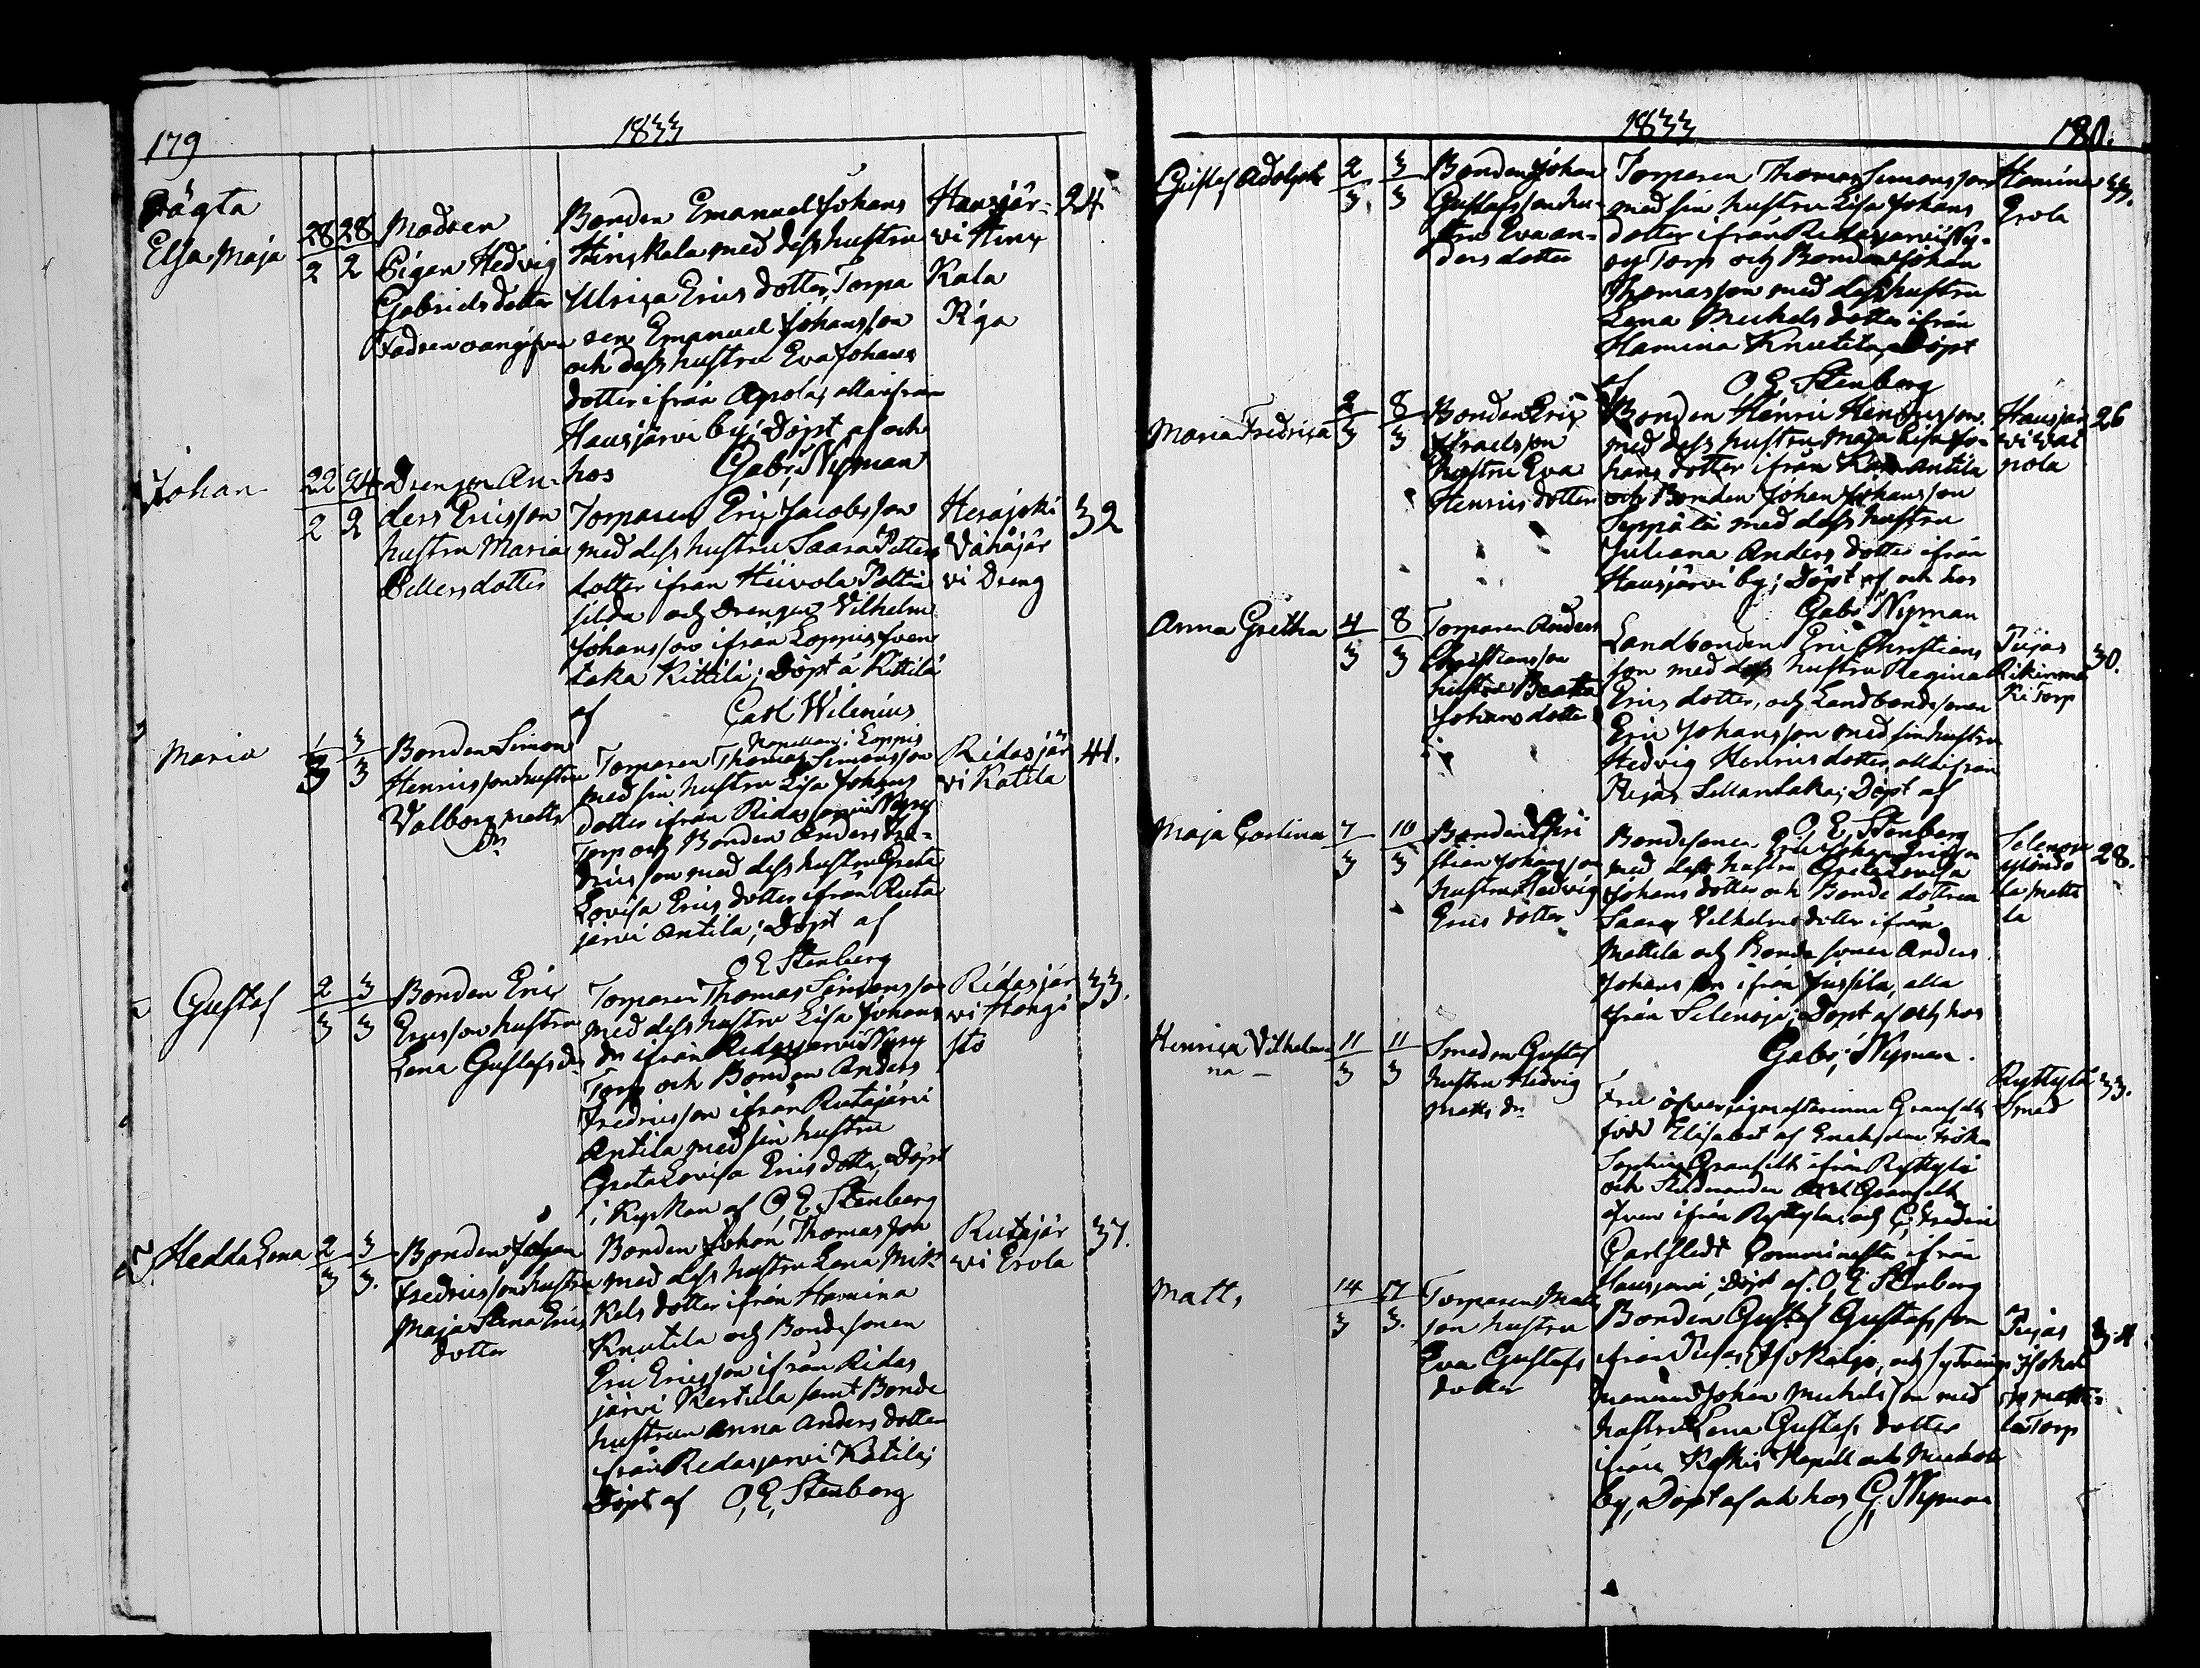 179
1833
Oägta
Elsa Maja
28 28
2 2
Modren
Pigan Hedvig
Gabrielsdotter
Fadren oangifven
Bonden Emanuel Johans
Hinskala med dess hustru
Ulrica Ericsdotter, Torpa
ren Emanuel Johansson
och dess hustru Eva Johans
dotter ifrån Apola, alla ifrån
Hausjärvi by; Döpt af och
hos Gabr. Nyman
Hausjär-
vi Hins
Kala
Piga
24
Johan
22 24
2 2
Drengen An-
ders Ericsson
hustru Maria
Pettersdotter
Torparen Eric Jacobsson
med dess hustru Saara Petters
dotter ifrån Hiivola Paltin
silda och Drengen Vilhelm
Johansson ifrån Loppis
taka Kittilä; Döpt å Kittilä
af Carl Wilenius
Kapellan i Loppis
Herajoki
Vähäjär
vi Dreng
32
Maria
1 3
3 3
Bonden Simon
Henricsson hustru
Valborg Matts
dr
Torparen Thomas Simonsson
med sin hustru Lisa Johans
dotter ifrån Ridasjärvi Nyry
Torp och Bonden Anders Fre-
dricsson med dess hustru Greta
Lovisa Erics dotter ifrån Ruta
järvi Antila; Döpt af
O E Stenberg
Ridasjär
vi Katila
41.
Gustaf
2 3
3 3
Bonden Eric
Ericsson hustru
Lena Gustafs dr
Torparen Thomas Simonsson
med dess hustru Lisa Johans
dr ifrån Ridasjärvi Nyry
Torp och Bonden Anders
Fredricsson ifrån Rutajärvi
Antila med sin hustru
Greta Lovisa Erics dotter, Döpt
i Kyrkan af O E Stenberg
Ridasjär
vi Hongi
sto
33.
Hedda Lena
2 3
3 3.
Bonden Johan
Fredricsson hustru
Maja Stina Erics
dotter
Bonden Johan Thomasson
med dess hustru Lena Mik-
kels dotter ifrån Hamina
Knutila och Bondesonen
Eric Ericsson ifrån Ridas
järvi Kertula samt Bonde
hustrun Anna Anders dotter
ifrån Ridasjärvi Katila;
Döpt af O, E, Stenberg
Rutajär
vi Erola
37.
1833
180.
Gustaf Adolph
2 3
3 3
Bonden Johan
Gustafsson hu-
stru Eva An-
dersdotter
Torparen Thomas Simonsson
med sin hustru Lisa Johans
dotter ifrån Ridasjärvi Ny-
ry Torp och Bonden Johan
Thomasson med dess hustru
Lena Michels dotter ifrån
Hamina Knutila, Döpt
af O E Stenberg
Hamina
Erola
Maria Fredrica
2 8
3 3
Bonden Eric
Israelsson
hustru Eva
Henrics dotter
Bonden Henric Henricsson
med dess hustru Maja Lisa Jo-
hans dotter ifrån Antila
och Bonden Johan Johansson
Seppälä med dess hustru
Juliana Anders dotter ifrån
Hausjärvi by; Döpt af och hos
Gabr Nyman
Hausjär
vi
pola
26
Anna Gretha
4 8
3 3
Torparen Anders
Christiansson
hustru Beata
Johans dotter
Landbonden Eric Christians
son med dess hustru Regina
Erics dotter, och Landbondesonen
Eric Johansson med sin hustru
Hedvig Henrics dotter alla ifrån
Rijas Sillantaka; Döpt af
O E Stenberg
Rijas
Rikinmä
ki Torp
30.
Maja Carlina
7 10
3 3
Bonden Chri
stian Johansson
hustru Hedvig
Erics dotter
Bondesonen Johan Ericsson
med dess hustru Greta Lovisa
Johans dotter och Bonde dottren
Saara Vilhelms dotter ifrån
Mattila och Bonde sonen Anders
Johansson ifrån Jussila, alla
ifrån Selenoja; Döpt af och hos
Gabr; Nyman
Selenoja
la Matti
la
28.
Henrica Vilhelmi
na
11 11
3 3
Smeden Gustaf
hustru Hedvig
Matts dr
Fru öfverjägmästarinna Granfelt
född Elisabet af Enehjelm Fröken
Sophia Granfelt ifrån Ryttylä
och Studeranden Granfelt
äfven ifrån Ryttylä och C; Fredric
Carlstedt ifrån
Hausjärvi, Döpt af O E Stenberg
Ryttylä
Smed
33.
Matts
14 17
3 3.
Torparen Matts
son hustru
Eva Gustafs
dotter
Bonden Gustaf Gustafsson
ifrån Rijas Isokalgo, och
Johan Michelsson med
hustru Lena Gustafs dotter
ifrån Kapell och
by, Döpt af och hos G, Nyman
Rijas
la Torp